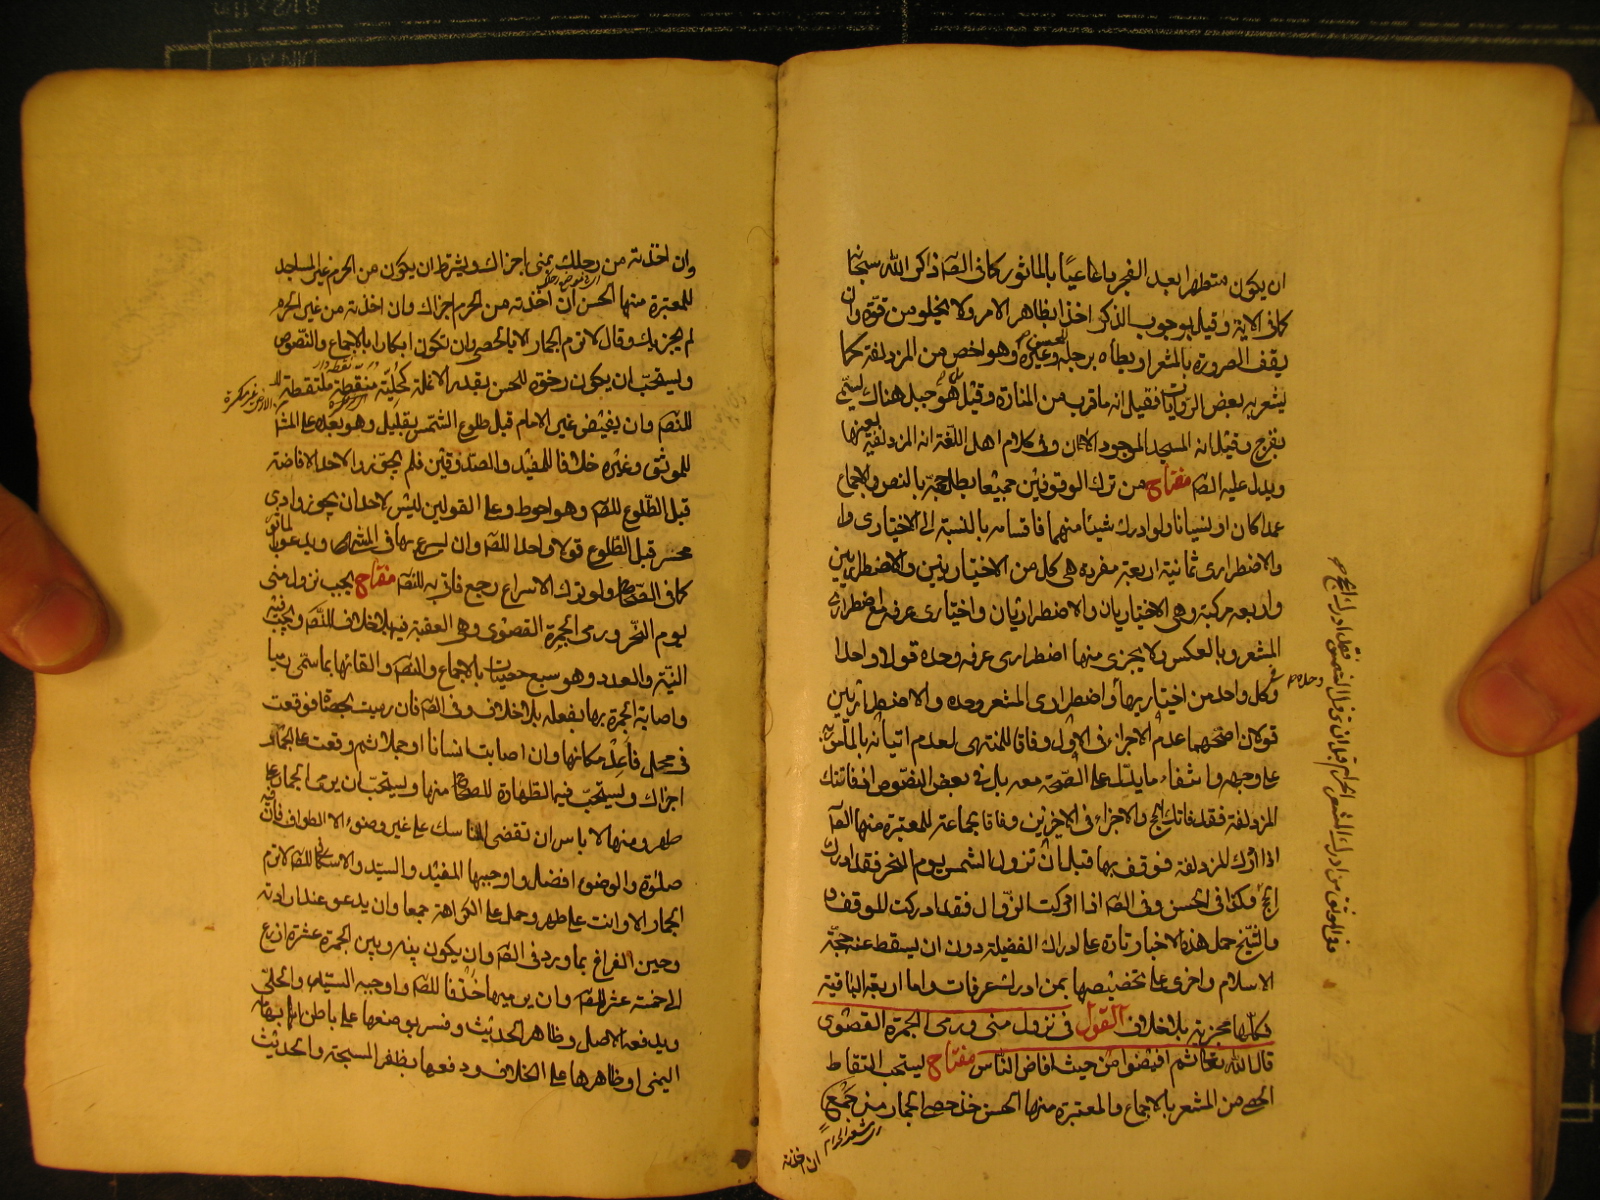 ان يكون متطهرا بعد الفجر باغاعيا بالماثور كما في الصحـ ذاكر الله سبحانه
كما في الاية وقيل بوجوب الذكر اخذا بظاهر الامر ولا يخلو من قوة وان
يقف الصرورة بالمشعر او يطأه برجله وغيره وهو اخص من المزدلفة كما
يشعر به بعض الروايات فقيل انه ما قرب من المنارة وقيل هو جبل هناك يسمى
بقزح وقيل انه المسجد الموجود الان وفي كلام اهل اللغة انه المزدلفة
ويدل عليه الصحـ مفتاح من ترك الوقوفين جميعا بطل حجه بالنص والاجماع
عمدا كان او نسيانا ولو ادرك شيئا منهما فاقسامه بالنسبة الى الاختيارى
والاضطرارى ثمانية اربعة مفرده هي كل من الاختياريين والاضطراريين
واربعه مركبة وهي الاختياريان والاضطراريان واختيارى عرفه مع اضطرارى
المشعر وبالعكس ولا يجزى منها اضطرارى عرفه وحده قولا واحدا
وكل واحد من اختياريها او اضطرارى المشعر وحده والاضطراريين
قولان اصحهما عدم الاجزاء في الاول وفاقا للمنتهى لعدم اتيانه بالمأمور به
على وجهه وانتفاء ما يدل على الصحة معه بل في بعض النصوص اذا فاتتك
المزدلفة فقد فاتك الحج والاجزاء في الاخيرين وفاقا لجماعة للمعتبرة منها الصحـ
اذا ادرك المزدلفة فوقف بها قبل ان تزول الشمس يوم النحر فقد ادرك
الحج وكذا في الحسن وفي الصحـ اذا ادركت الزوال فقد ادركت الموقف
والشيخ حمل هذه الاخبار تارة على ادراك الفضيلة دون ان يسقط عنه حجة
الاسلام واخرى على تخصيصها بمن ادرك عرفات واما اربعة الباقية
فكلها مجزية بلا خلاف القول في نزول منى ورمى الجمرة القصوى
قال الله تعالى ثم افيضوا من حيث افاض الناس مفتاح يستحب التقاط
الحصى من المشعر بالاجماع والمعتبرة منها الحسن خذ حصى الجمار من جمع
ان اخذته
وحده
وان اخذته من رحلك بمنى اجزاك ويشترط ان يكون من الحرم غير المساجد
للمعتبرة منها الحسن ان اخذته من الحرم اجزاك وان اخذته من غير الحرم
لم يجزيك وقال لا ترم الجمار الا بالحصى وان تكون ابكارا بالاجماع والنصوص
ويستحب ان يكون رخوة للحسن بقدر الانملة كحلية منقطة ملتقطة
للنصـ وان يفيض غير الامام قبل طلوع الشمس بقليل وهو بعده على المشـ
للموثق وغيره خلافا للمفيد والصدوقين فلم يجوزوا لاحد الافاضة
قبل الطلوع للصحـ وهو احوط وعلى القولين ليس لاحد ان يجوز وادى
محسر قبل الطلوع قولا واحدا للصحـ وان يسرع بها في المشـ ويدعو بالماثور
كما في الصحاح ولو ترك الاسراع رجع فاتى به للنصـ مفتاح يجب نزول منى
يوم النحر ورمى الجمرة القصوى وهي العقبة فيه بلا خلاف للنصـ ويجب فيه
النية والعدد وهو سبع حصيات بالاجماع والنصـ والقائها بما سمى رميا
واصابة الجمرة بها بفعله بلا خلاف وفي الصحـ فان رميت بحصاة فوقعت
في محمل فاعد مكانها وان اصابت انسانا او جملا ثم وقعت على الجمار
اجزاك ويستحب فيه الطهارة للصحاح منها ويستحب ان يرمى الجمار على
طهر ومنها لا باس ان تقضى المناسك على غير وضوء الا الطواف فان فيه
صلوة والوضوء افضل واوجبها المفيد والسيد والاسكافى للصحـ لا ترم
الجمار الا وانت على طهر وحمل على الكراهة جمعا وان يدعو عند ارادته
وحين الفراغ بما ورد في الصحـ وان يكون بينه وبين الجمرة عشرة اذرع
الى خمسة عشر للصحـ وان يرميها خذفا للصحـ واوجبه السيد والحلى
ويدفعه الاصل وظاهر الحديث وفسر بوضعها على باطن ابهام
اليمنى وظاهرها على الخلاف ودفعها بظفر السبحة والحديث